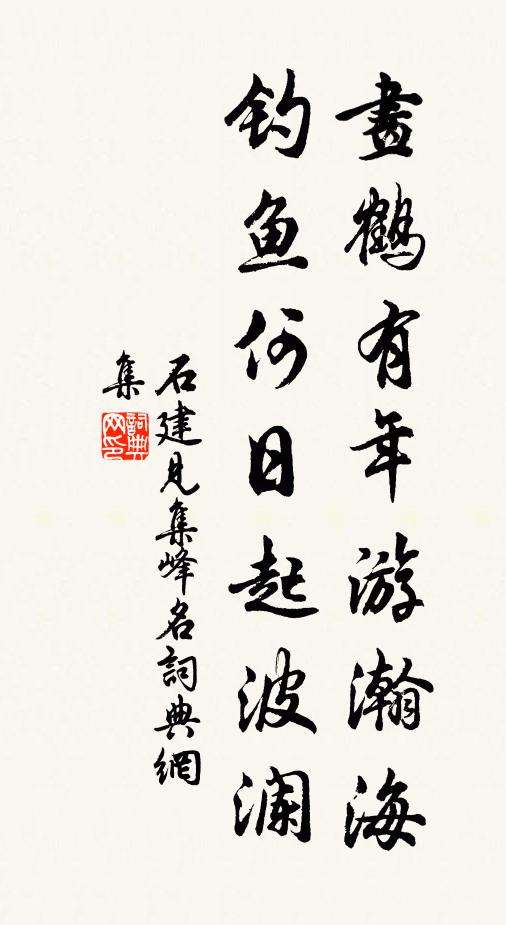 畫鶴有年游瀚海
钓鱼何日起波澜
石建見集峰名詞典網
集
詞典
网印